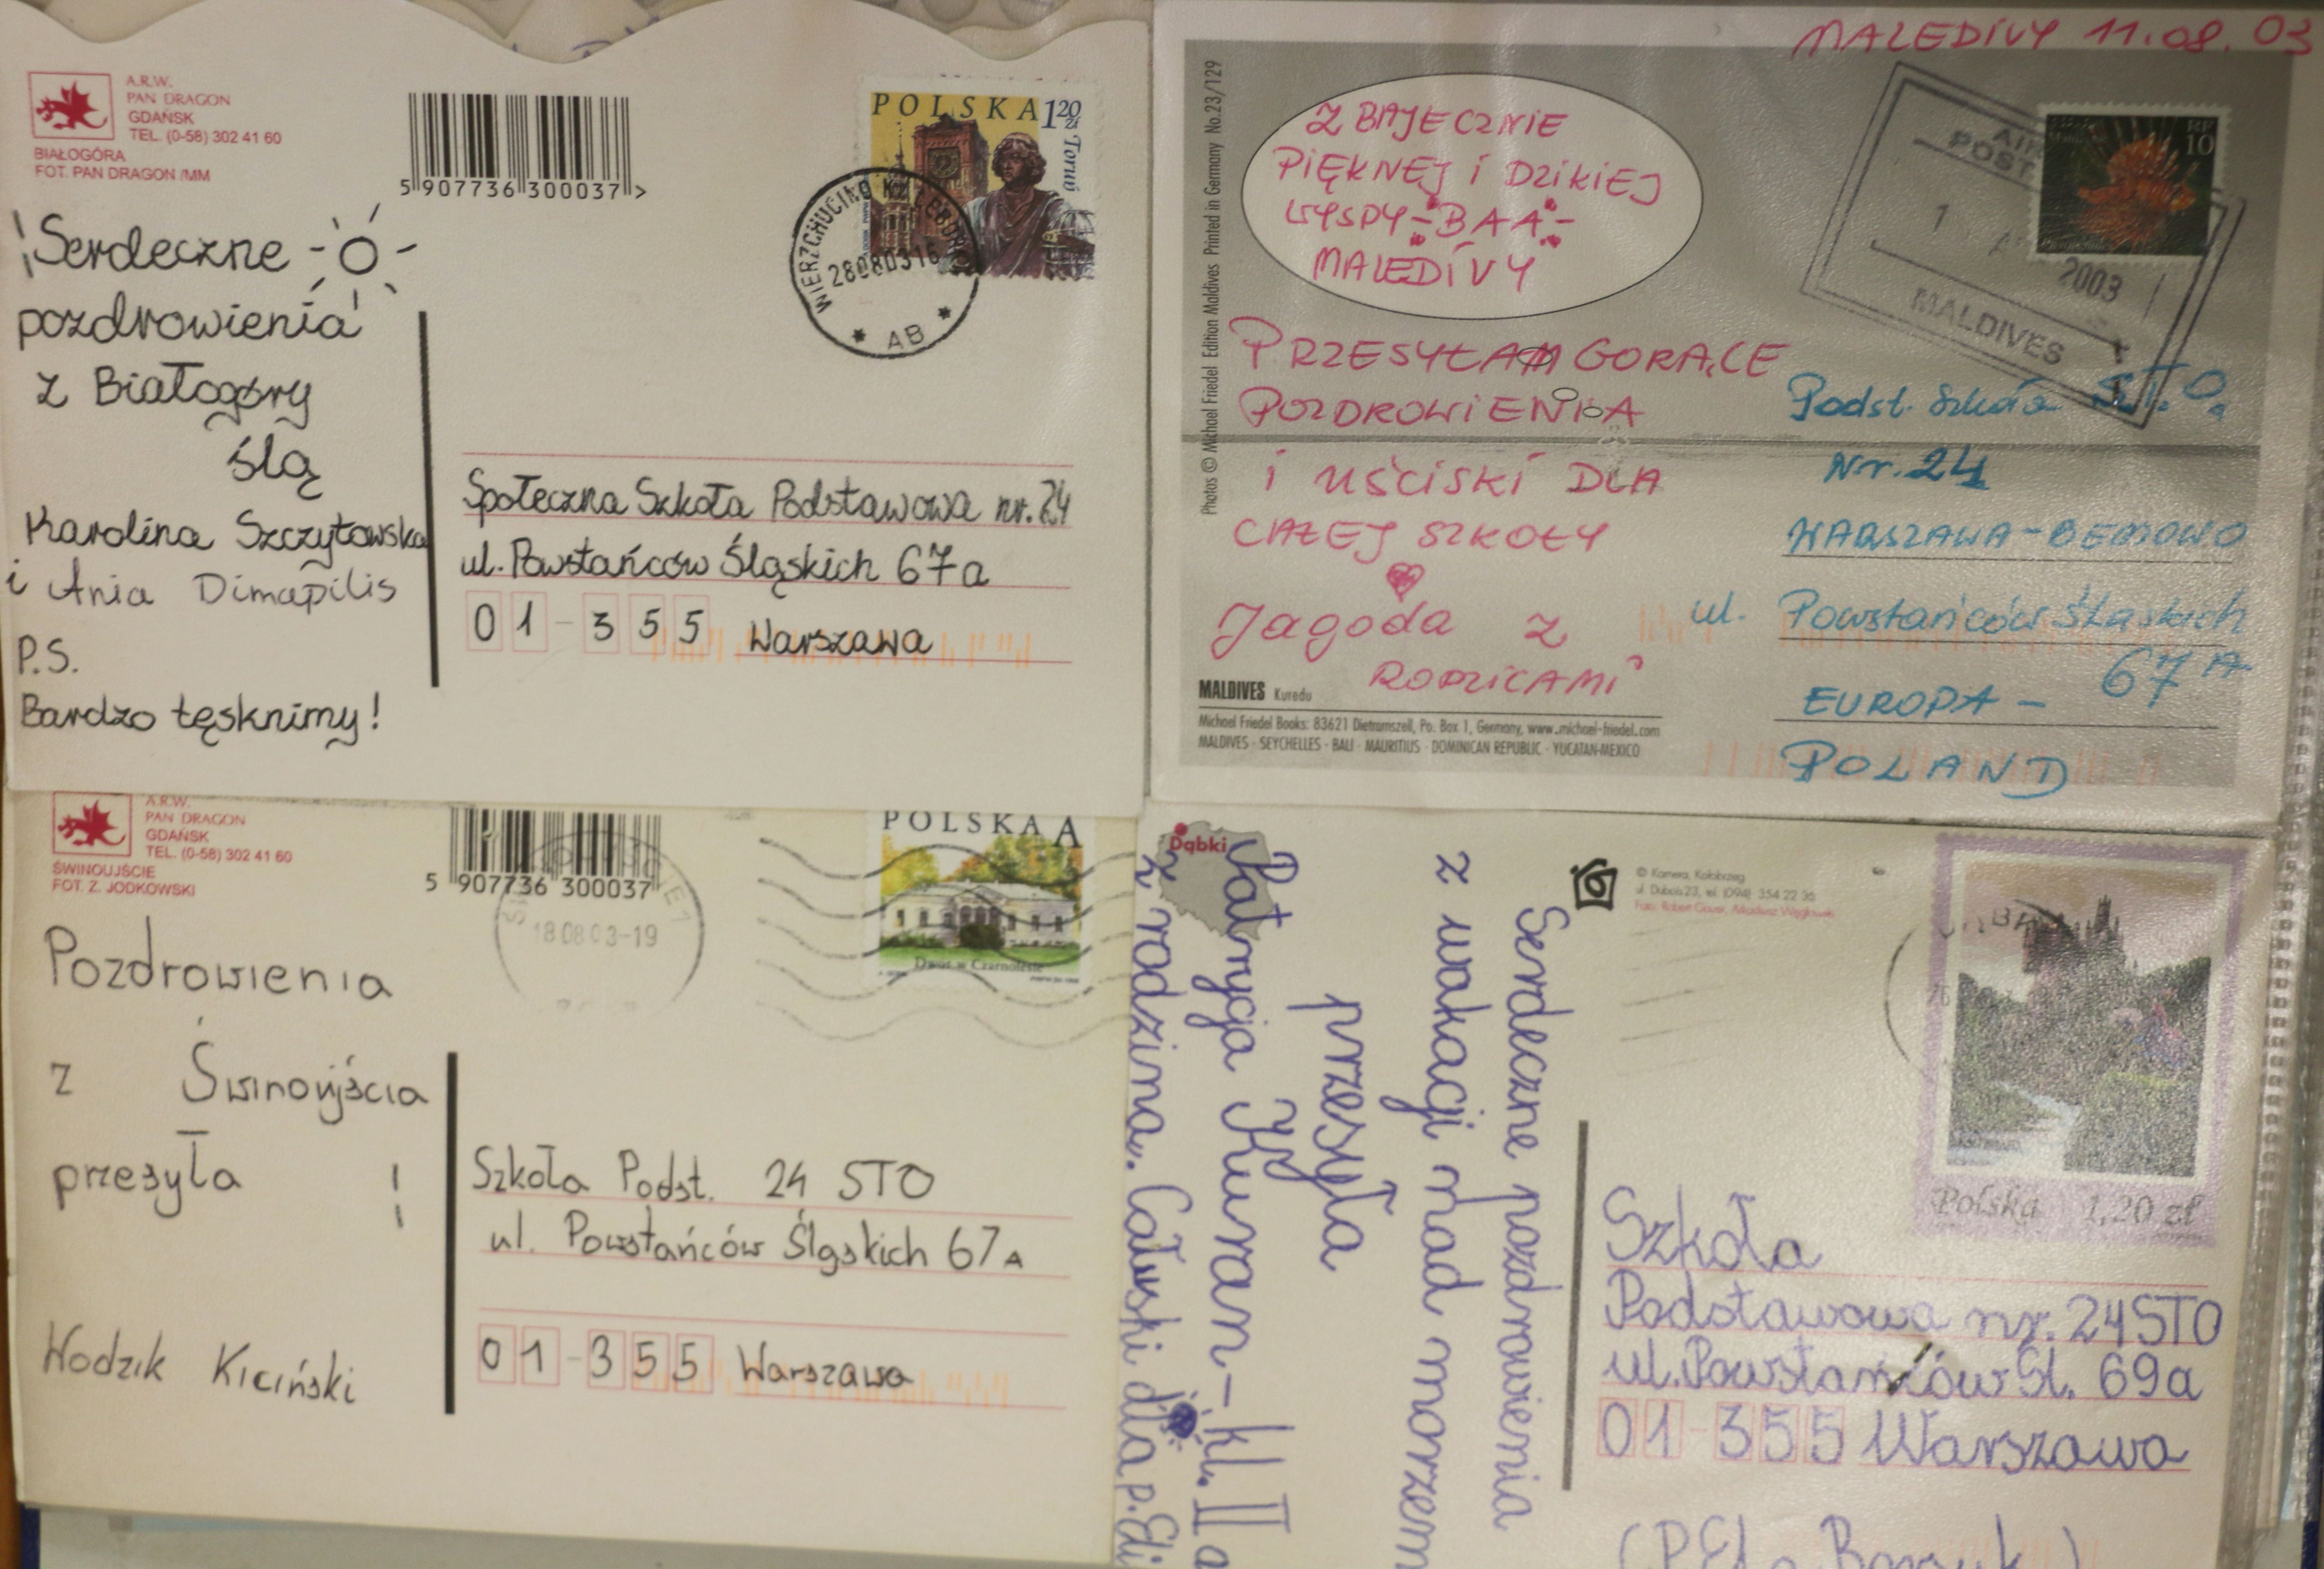 A.R.W.
PAN DRAGON
GDAŃSK
TEL. (0-58) 302 41 60
BIAŁOGÓRA
FOT. PAN DRAGON /MM
5 907736 300037 >
POLSKA 1 20 zł
Toruń
WIERZCHUCINO K/LĘBORKA
280803 16
* AB *
Serdeczne
pozdrowienia
z Białogóry
ślą
Karolina Szczytowska
i Ania Dimapilis
P.S.
Bardzo tęsknimy!
Społeczna Szkoła Podstawowa nr. 24
ul. Powstańców Śląskich 67a
01-355 Warszawa
MALEDIVY 11.08.03
Photos © Michael Friedel Edition Maldives Printed in Germany No.23/129
Z BAJECZNIE
PIĘKNEJ i DZIKIEJ
WYSPY - BAA -
MALEDIVY
PRZESYŁAM GORĄCE
POZDROWIENIA
i UŚCISKI DLA
CAŁEJ SZKOŁY
Jagoda z
RODZICAMI
MALDIVES Kuredu
Michael Friedel Books: 83621 Dietramszell, Po. Box 1, Germany, www.michael-friedel.com
MALDIVES · SEYCHELLES · BALI · MAURITIUS · DOMINICAN REPUBLIC · YUCATAN-MEXICO
AIR
POST
1
2003
MALDIVES
RF
10
Podst. Szkoła S.T.O.
Nr. 24
WARSZAWA-BEMOWO
ul. Powstańców Śląskich
67A
EUROPA -
POLAND
A.R.W.
PAN DRAGON
GDAŃSK
TEL. (0-58) 302 41 60
ŚWINOUJŚCIE
FOT. Z. JODKOWSKI
5 907736 300037
18 08 03-19
POLSKA A
Dwór w Czarnolesie
Pozdrowienia
z Świnoujścia
przesyła
Wodzik Kiciński
Szkoła Podst. 24 STO
ul. Powstańców Śląskich 67A
01-355 Warszawa
Dąbki
Serdeczne pozdrowienia
z wakacji nad morzem
przesyła
Patrycja Kuran - kl. II a
z rodziną. Całuski dla p. Eli
© Kamera, Kołobrzeg
ul. Dubois 23, tel. (094) 354 22 36
Polska 1,20 zł
Szkoła
Podstawowa nr. 24STO
ul. Powstańców Śl. 69a
01-355 Warszawa